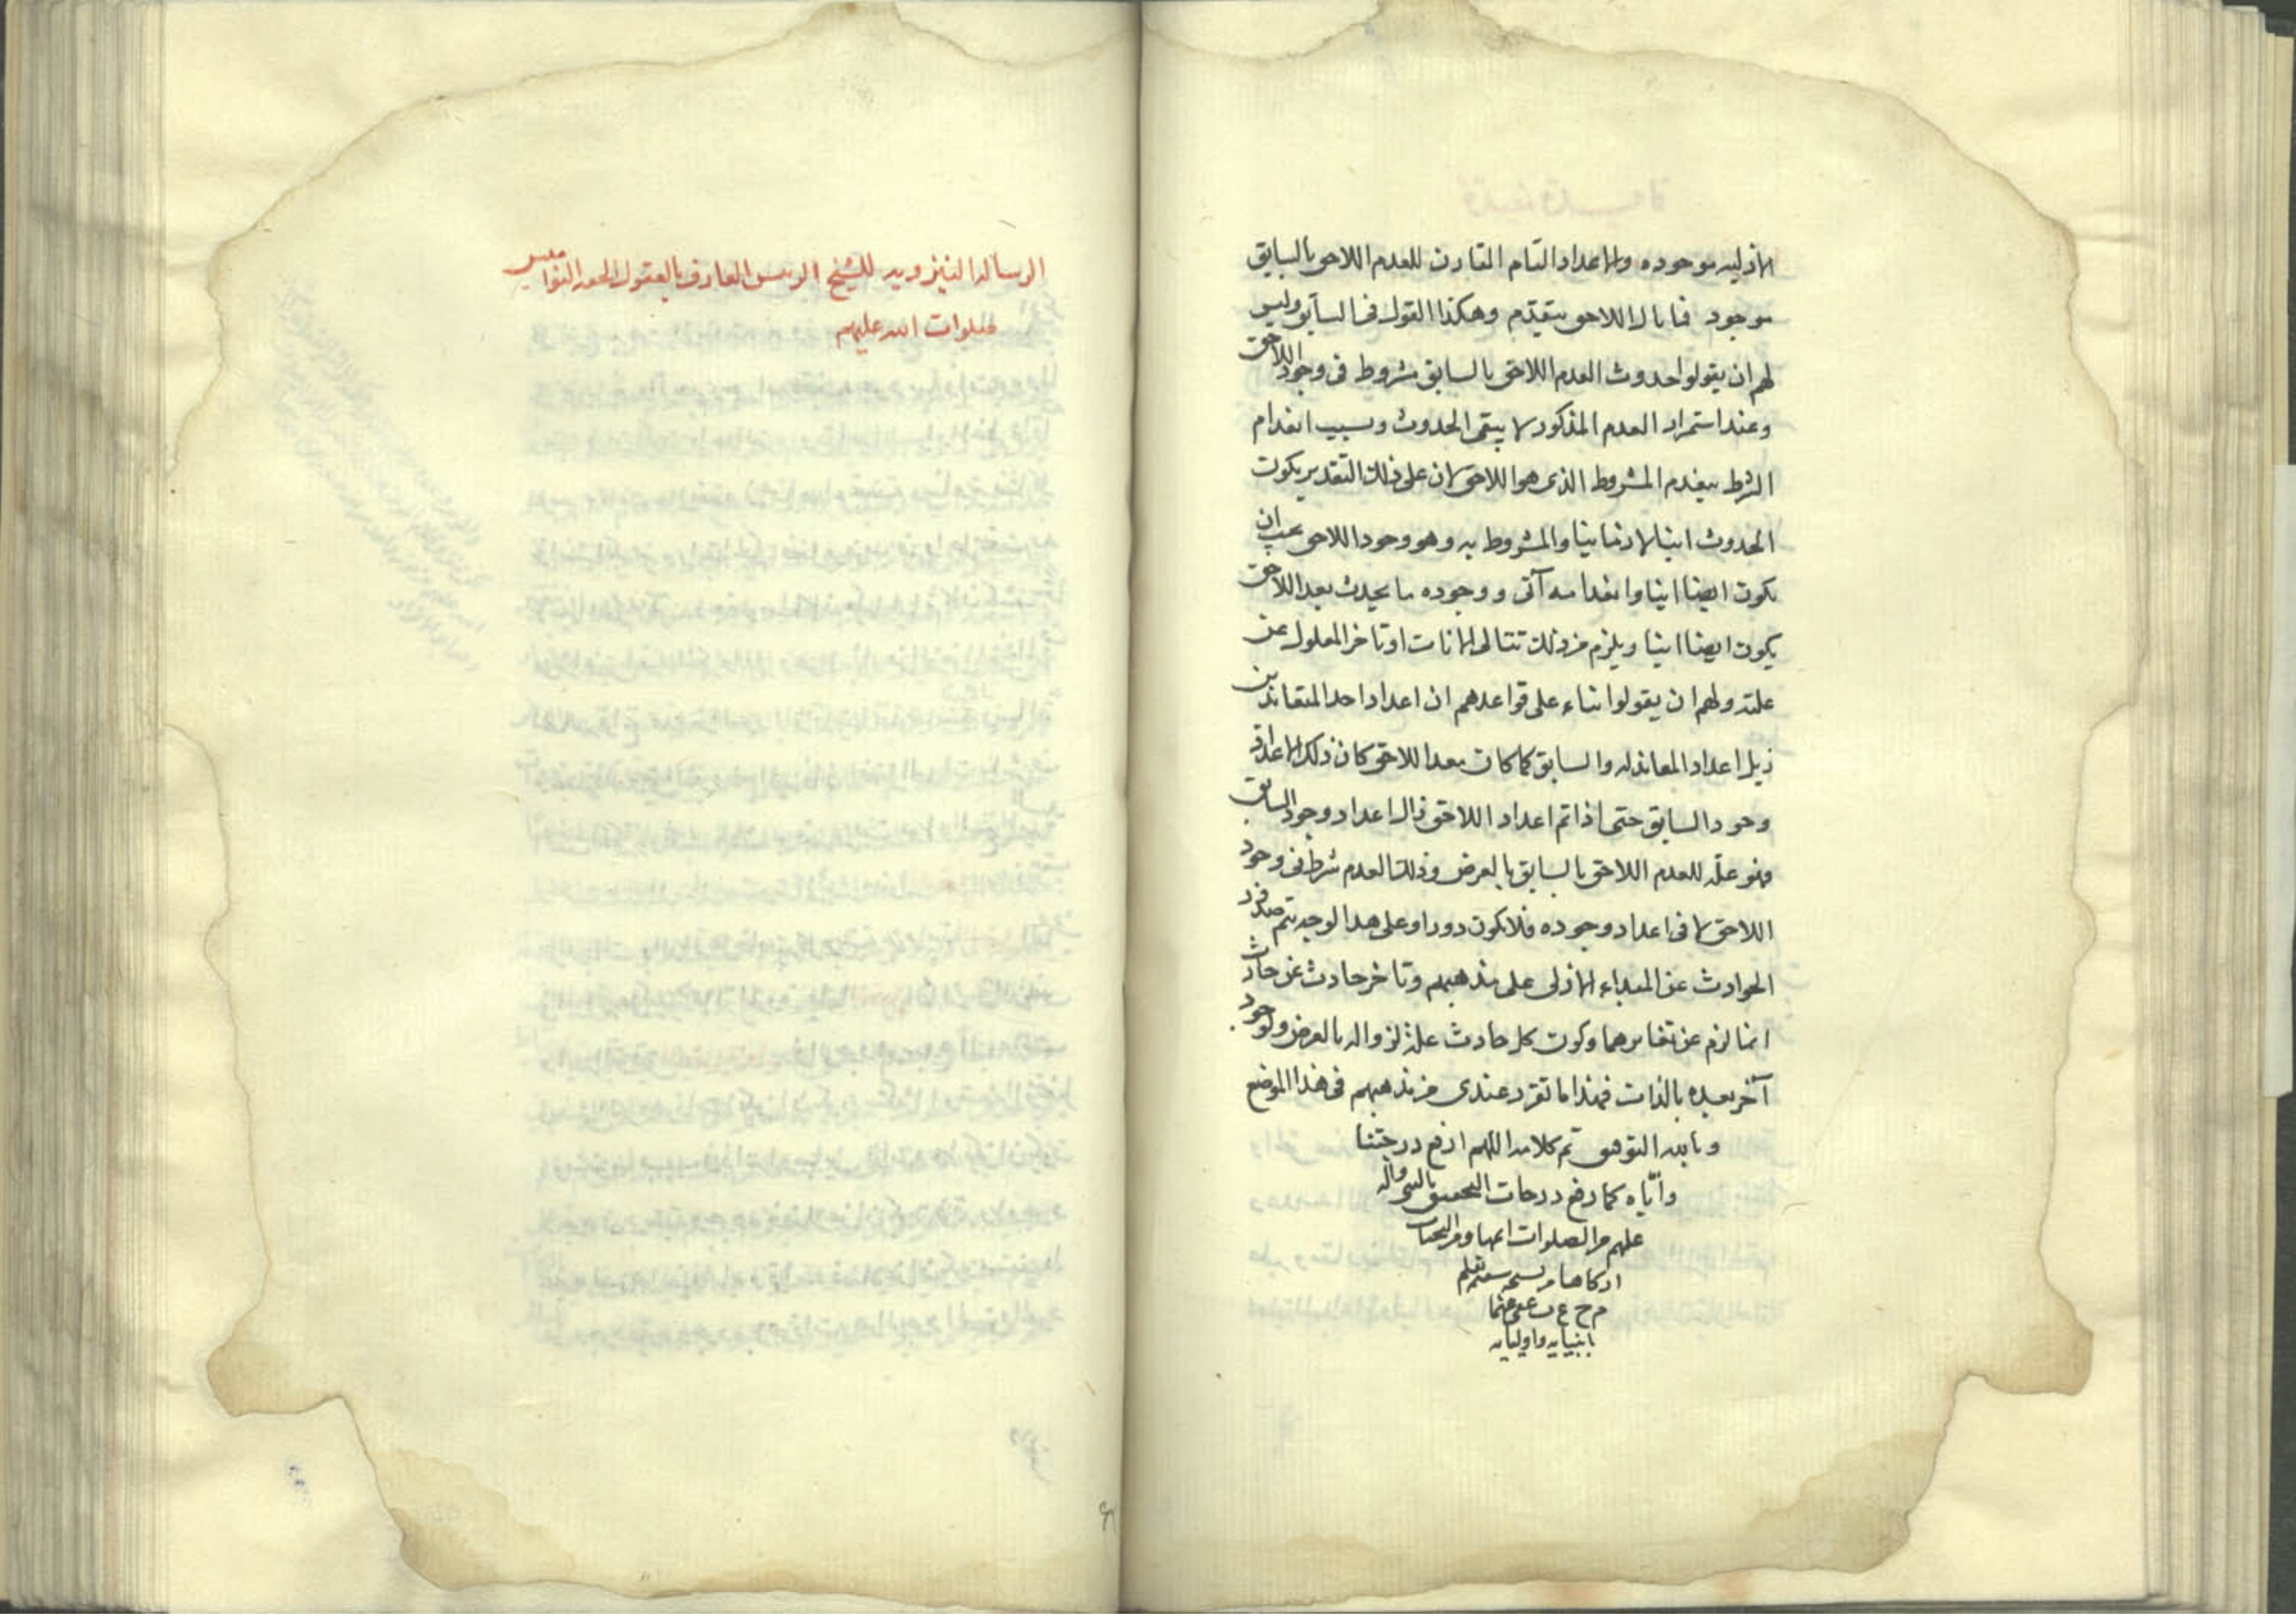 الازليه موجوده والاعداد التام المقارن للعدم اللاحق بالسابق
موجود فما بال اللاحق يتقدم وهكذا القول فى السابق وليس
لهم ان يقولوا حدوث العدم اللاحق بالسابق مشروط فى وجود اللاحق
وعند استمرار العدم المذكور لا يبقى الحدوث وبسبب انعدام
الشرط ينعدم المشروط الذى هو اللاحق لان على ذلك التقدير يكون
الحدوث انيا لا زمانيا والمشروط به وهو وجود اللاحق يجب ان
يكون ايضا انيا وانعدامه آنى ووجوده ما يحدث بعد اللاحق
يكون ايضا انيا ويلزم من ذلك تتالى الانات او تاخر المعلول عن
علته ولهم ان يقولوا بناء على قواعدهم ان اعداد احد المتعاندين
يزيل اعداد المعاند له والسابق كما كان بعد اللاحق كان ذلك الاعداد
وجود السابق حتى اذا تم اعداد اللاحق زال اعداد وجود السابق
فهو علة للعدم اللاحق بالسابق بالعرض وذلك العدم شرط فى وجود
اللاحق لا فى اعداد وجوده فلا يكون دورا وعلى هذا الوجه يتم صدور
الحوادث عن المبداء الازلى على مذهبهم وتاخر حادث عن حادث
انما لزم عن تغايرهما وكون كل حادث علة لزواله بالعرض ولوجود
آخر بعده بالذات فهذا ما تقرر عندى من مذهبهم فى هذا الموضع
وبالله التوفيق تم كلامه اللهم ارفع درجتنا
واياه كما رفع درجات المحققين بالنبى وآله
عليهم من الصلوات اتمها ومن التحيات
ازكاها من نسخه سقيم بقلم
م ح ع ن عفى عنهما
بانبيايه واوليايه
الرساله النيروزيه للشيخ الرئيس العارف بالعقول الحقه النواميس
صلوات الله عليهم